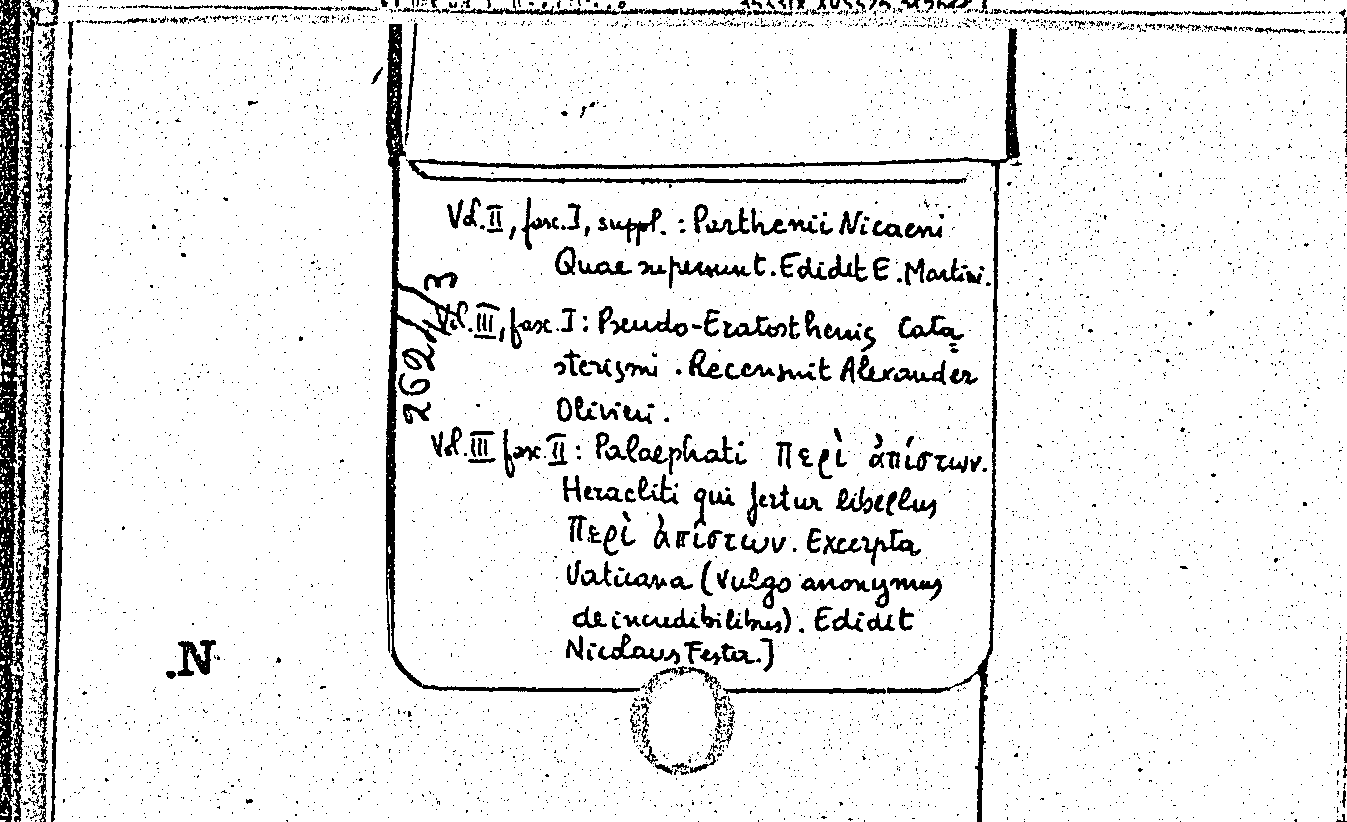 Vol. II, fasc. I, suppl. : Parthenii Nicaeni
Quae supersunt. Edidit E. Martini.
Vol. III, fasc. I : Pseudo-Eratosthenis Cata
sterismi . Recensuit Alexander
Olivieri .
Vol. III fasc. II : Palaephati Περὶ ἀπίστων.
Heracliti qui fertur libellus
Περὶ ἀπίστων. Excerpta
Vaticana (vulgo anonymus
de incredibilibus). Edidit
Nicolaus Festa.]
262/1/3
.N